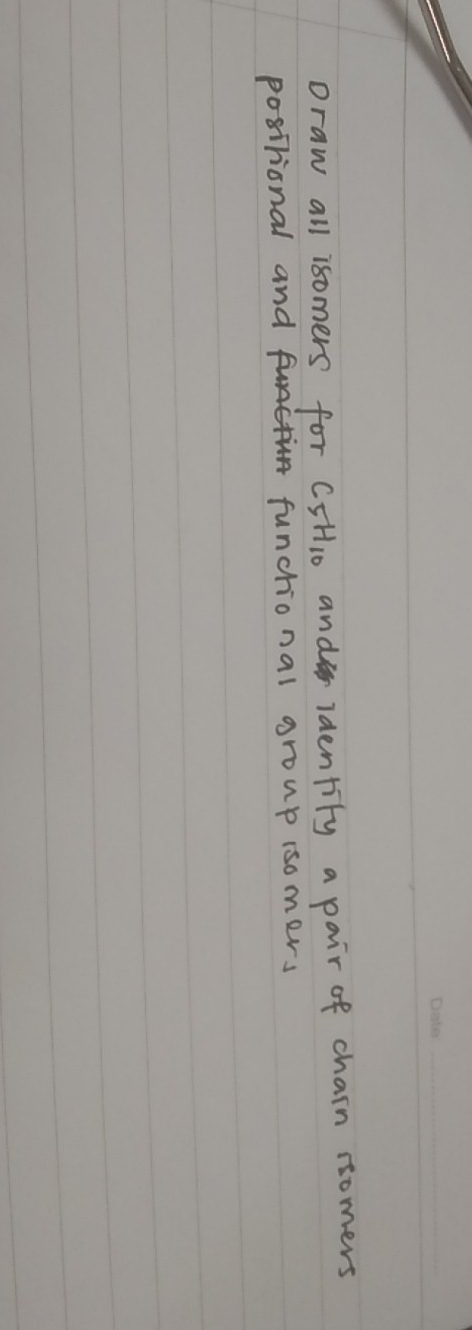 Date
Draw all isomers for C5H10 and identify a pair of chain isomers
positional and functional group isomers